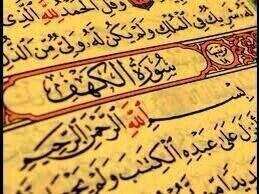 وَقُلِ الْحَمْدُ لِلَّهِ الَّذِي
شَرِيكٌ فِي الْمُلْكِ وَلَمْ يَكُن لَّهُ وَلِيٌّ مِّنَ الذُّلِّ
سُورَةُ الْكَهْفِ
بِسْمِ اللَّهِ الرَّحْمَٰنِ الرَّحِيمِ
أَنزَلَ عَلَىٰ عَبْدِهِ الْكِتَٰبَ وَلَمْ يَجْعَل